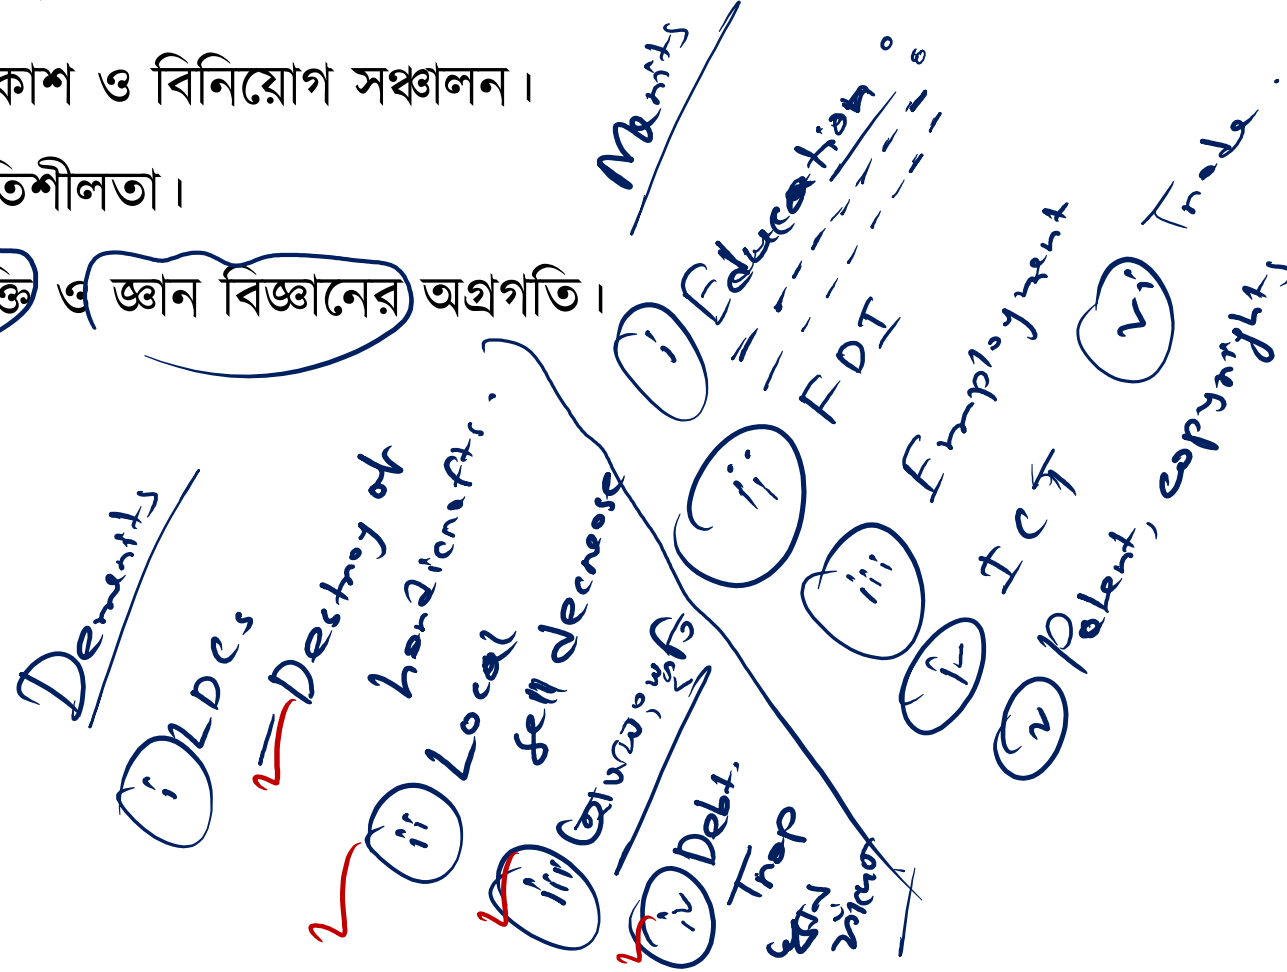 কাশ ও বিনিয়োগ সঞ্চালন।
তিশীলতা।
ক্তি ও জ্ঞান বিজ্ঞানের অগ্রগতি।
Merits
i Education
ii FDI
iii Employment
iv ICT
v Patent, copyright
vi Trade
Demerits
i LDCs
Destroy of
handicrafts.
ii Local
sell decrease
iii
iv Debt
Trap
ঋণ
ফাঁদ